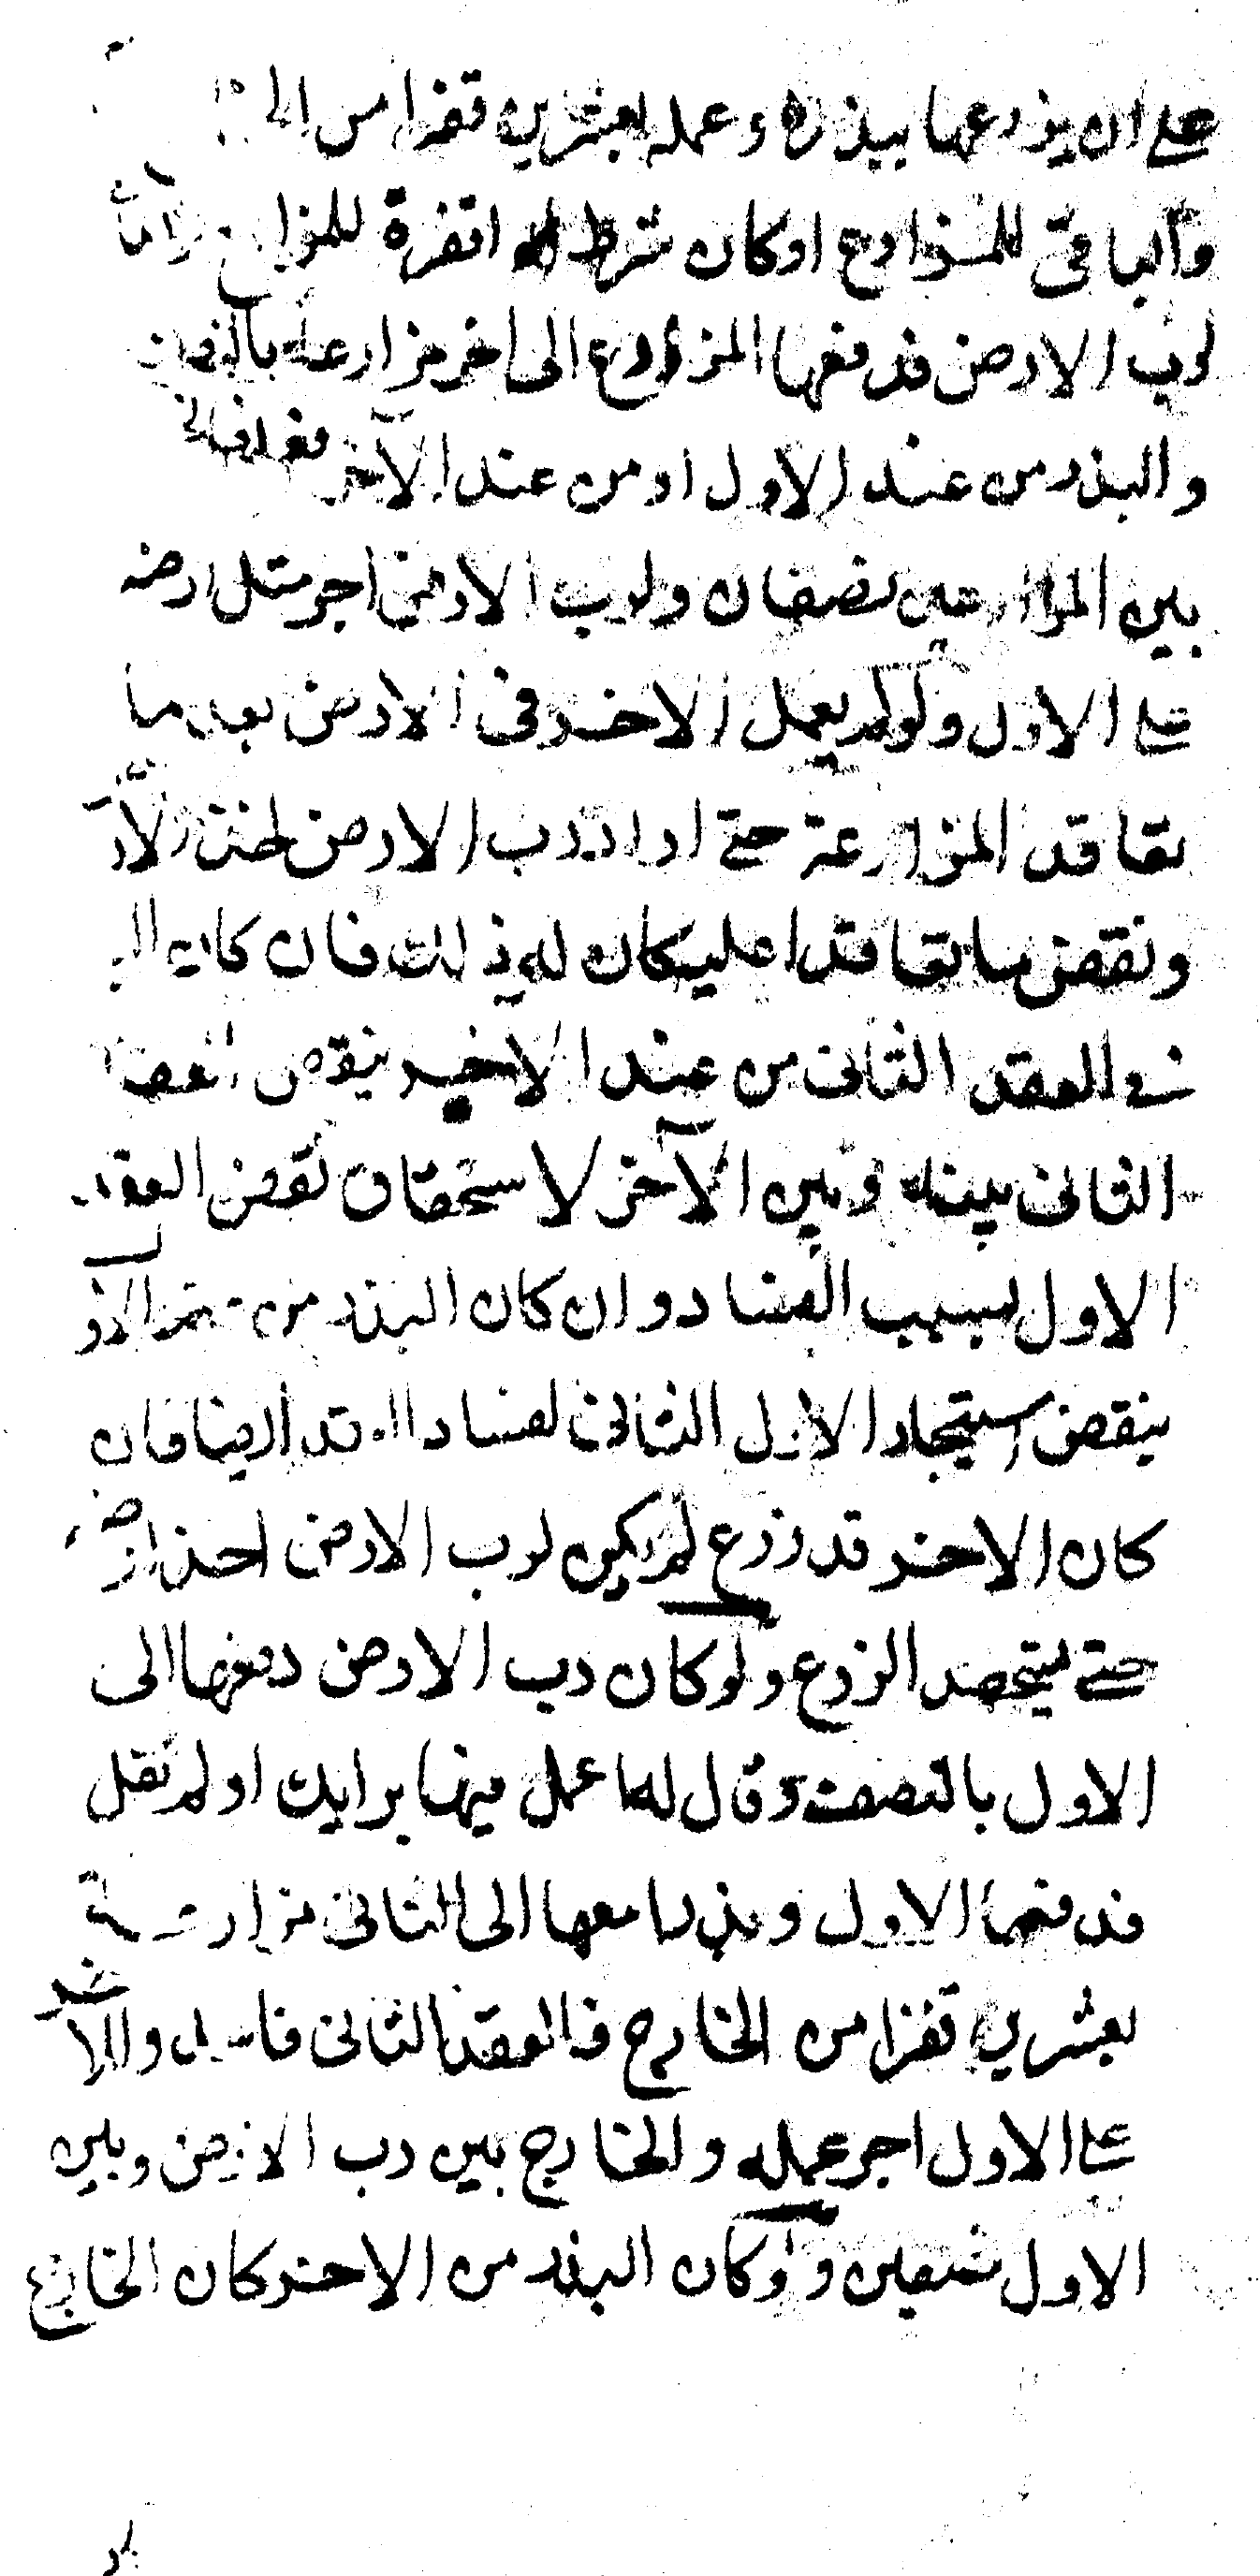 على ان يزرعها ببذره وعمله بعشرين قفزا من الخا
والباقي للمزارع او كان شرط له اقفزة للمزارع والباقي
لرب الارض فدفعها المزارع الى اخر مزارعة بالنصف
والبذر من عند الاول او من عند الآخر فعملا فالخا
بين المزارعين نصفان ولرب الارض اجر مثل ارضه
على الاول ولو لم يعمل الاخر في الارض بعد ما
تعاقد المزارعة حتى اراد رب الارض اخذ الار
ونقض ما تعاقدا عليه كان له ذلك فان كان البذ
في العقد الثاني من عند الاخير ينقض العقد
الثاني بينه وبين الآخر لاستحقاق نقض العقد
الاول بسبب الفساد وان كان البذر من عند الاو
ينقض استيجار الاول الثاني لفساد العقد ايضا فان
كان الاخر قد زرع لم يكن لرب الارض اخذ ارضه
حتى يستحصد الزرع ولو كان رب الارض دفعها الى
الاول بالنصف وقال له اعمل فيها برايك او لم يقل
فدفعها الاول وبذرا معها الى الثاني مزارعة
بعشرين قفزا من الخارج فالعقد الثاني فاسد وللاخر
على الاول اجر عمله والخارج بين رب الارض وبين
الاول نصفين ولو كان البذر من الاخر كان الخارج